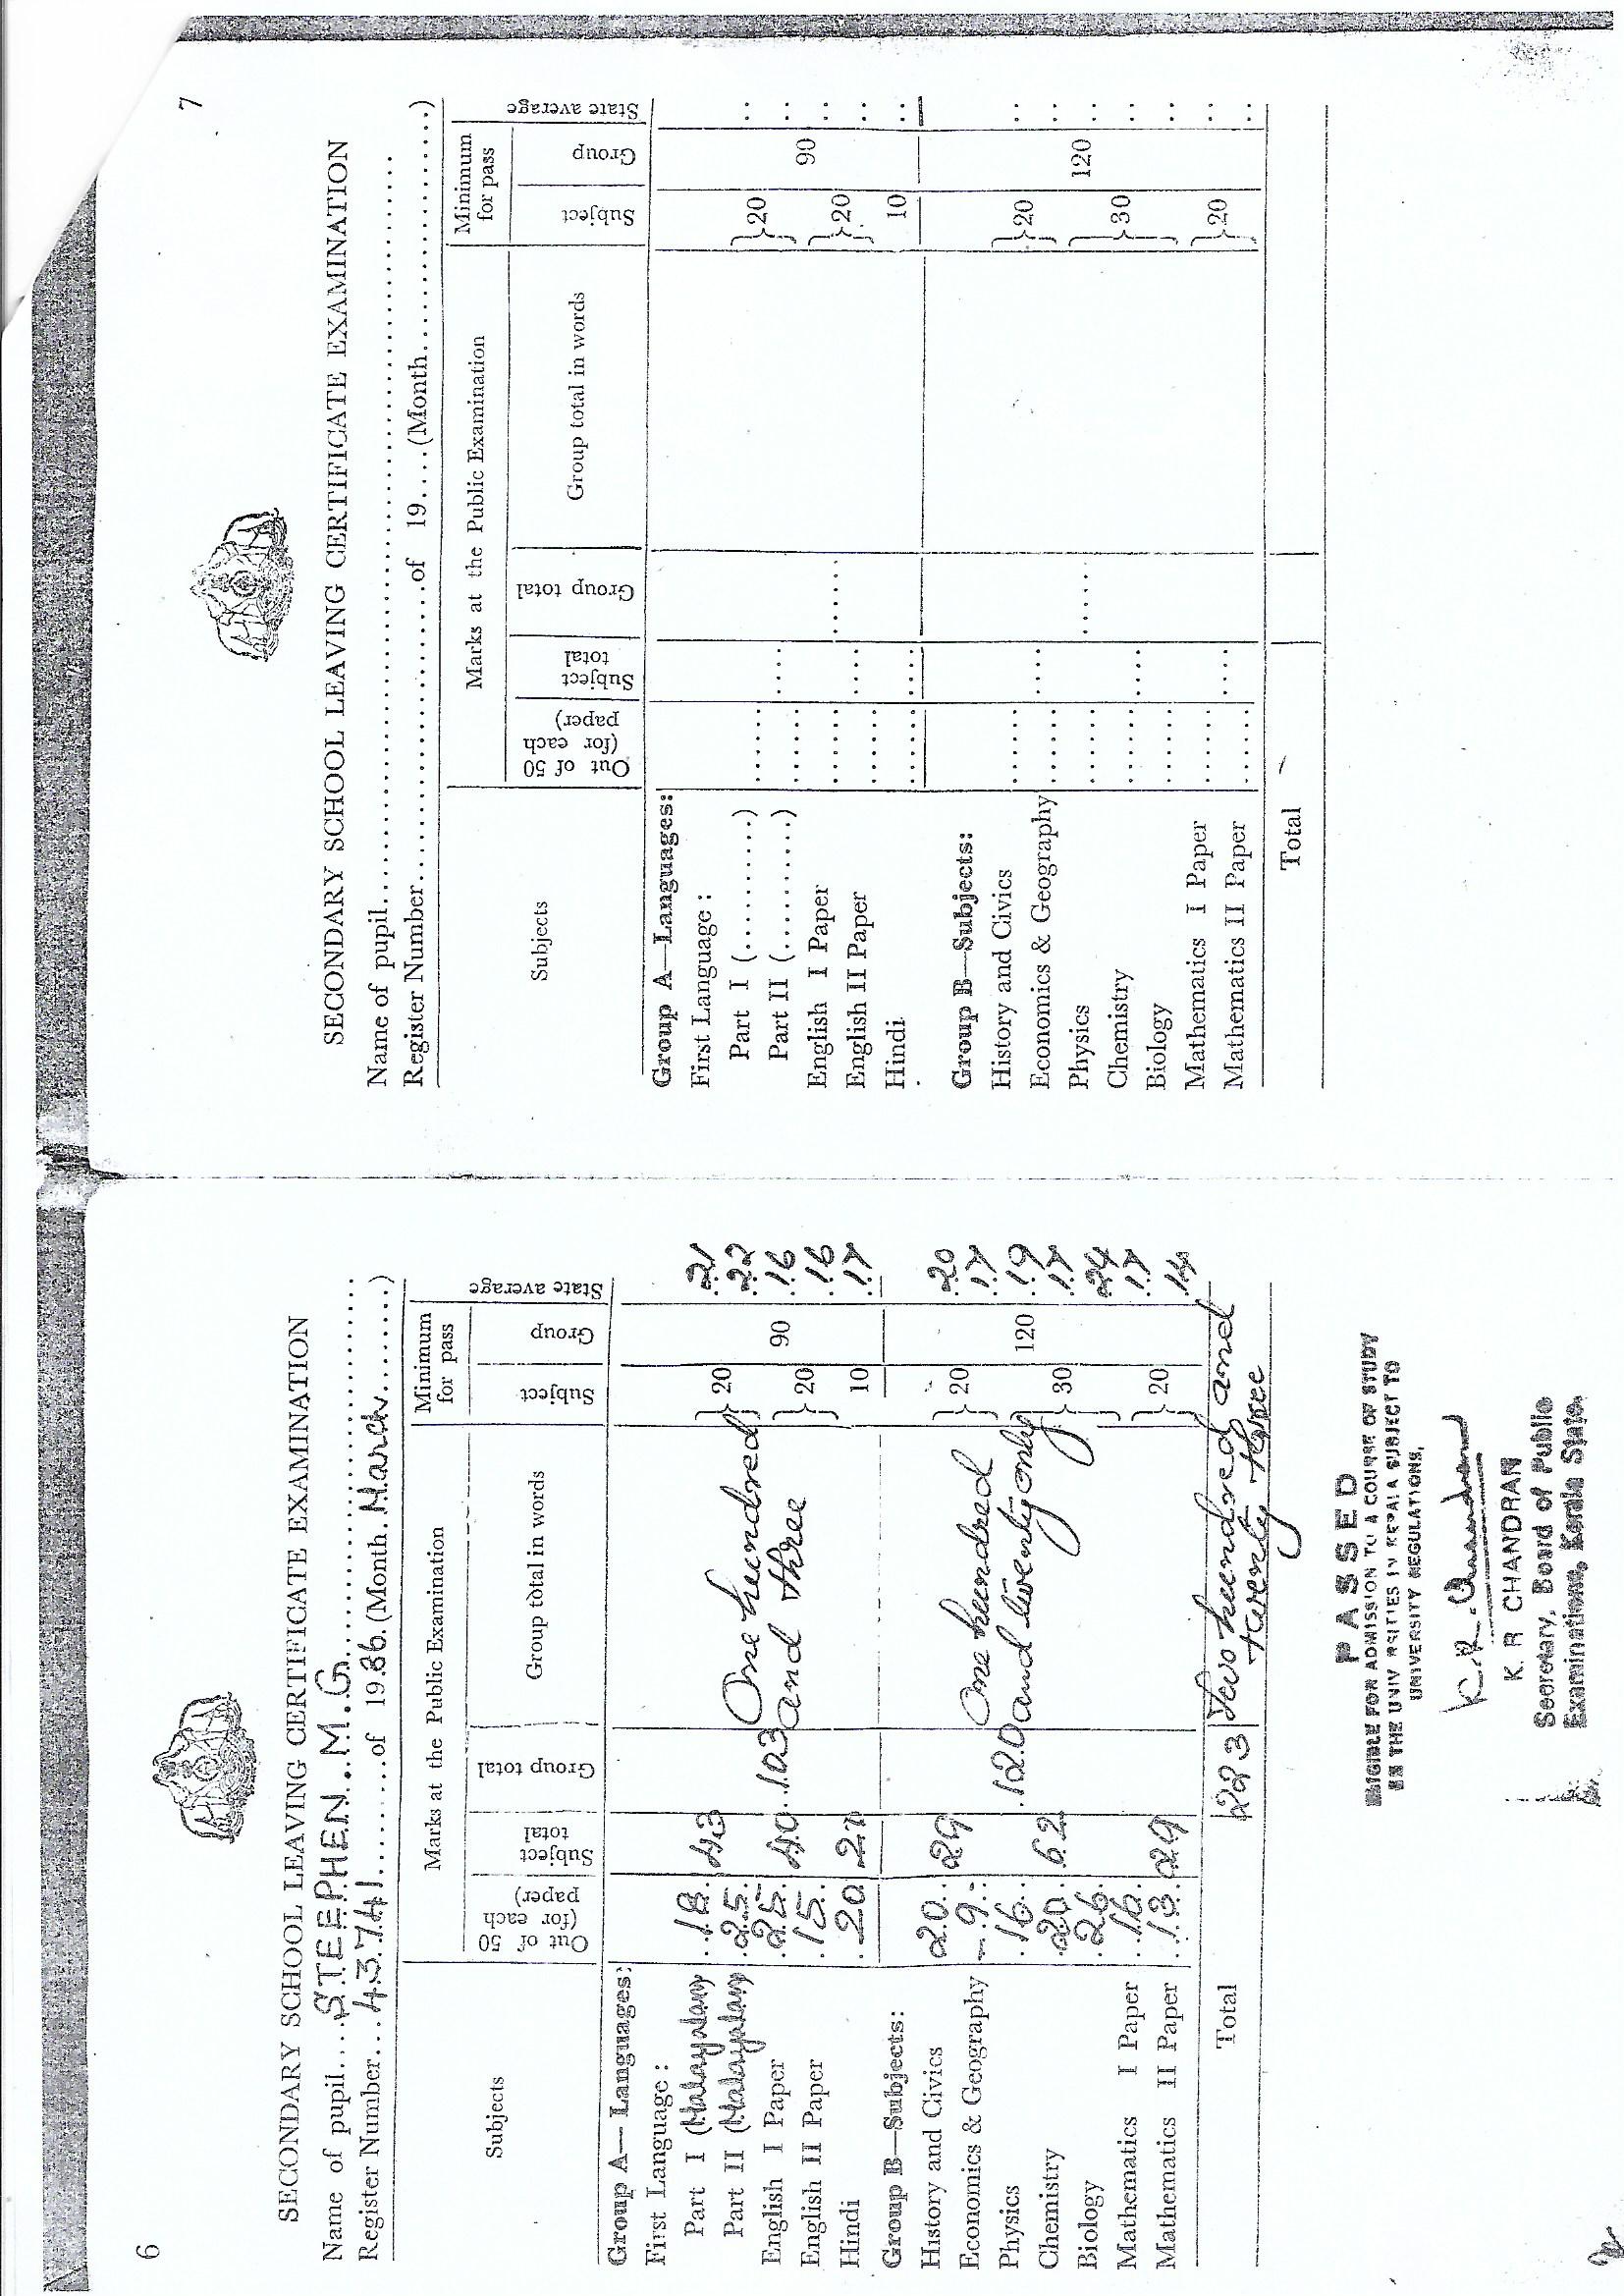 6
SECONDARY SCHOOL LEAVING CERTIFICATE EXAMINATION
Name of pupil....STEEPHEN..M.G
Register Number...43741........of 1986.(Month.March......)
Subjects
Marks at the Public Examination
Minimum for pass
State average
Out of 50 (for each paper)
Subject total
Group total
Group total in words
Subject
Group
Group A—Languages:
First Language:
Part I (Malayalam) 18 43 20 21
Part II (Malayalam) 25 22
English I Paper 25 40 103 One hundred and three 20 90 16
English II Paper 15 16
Hindi 20 20 10 17
Group B—Subjects:
History and Civics 20 29 20 20
Economics & Geography 9 17
Physics 16 120 One hundred and twenty only 120 19
Chemistry 20 62 30 17
Biology 26 24
Mathematics I Paper 16 29 20 17
Mathematics II Paper 13 14
Total 223 Two hundred and twenty three
PASSED
ELIGIBLE FOR ADMISSION TO A COURSE OF STUDY
IN THE UNIVERSITIES IN KERALA SUBJECT TO
UNIVERSITY REGULATIONS.
K.R. Chandran
K. R CHANDRAN
Secretary, Board of Public
Examinations, Kerala State.
7
SECONDARY SCHOOL LEAVING CERTIFICATE EXAMINATION
Name of pupil
Register Number of 19....(Month)
Subjects
Marks at the Public Examination
Minimum for pass
State average
Out of 50 (for each paper)
Subject total
Group total
Group total in words
Subject
Group
Group A—Languages:
First Language:
Part I (..........) 20
Part II (..........)
English I Paper 20 90
English II Paper
Hindi 10
Group B—Subjects:
History and Civics 20
Economics & Geography
Physics 120
Chemistry 30
Biology
Mathematics I Paper 20
Mathematics II Paper
Total